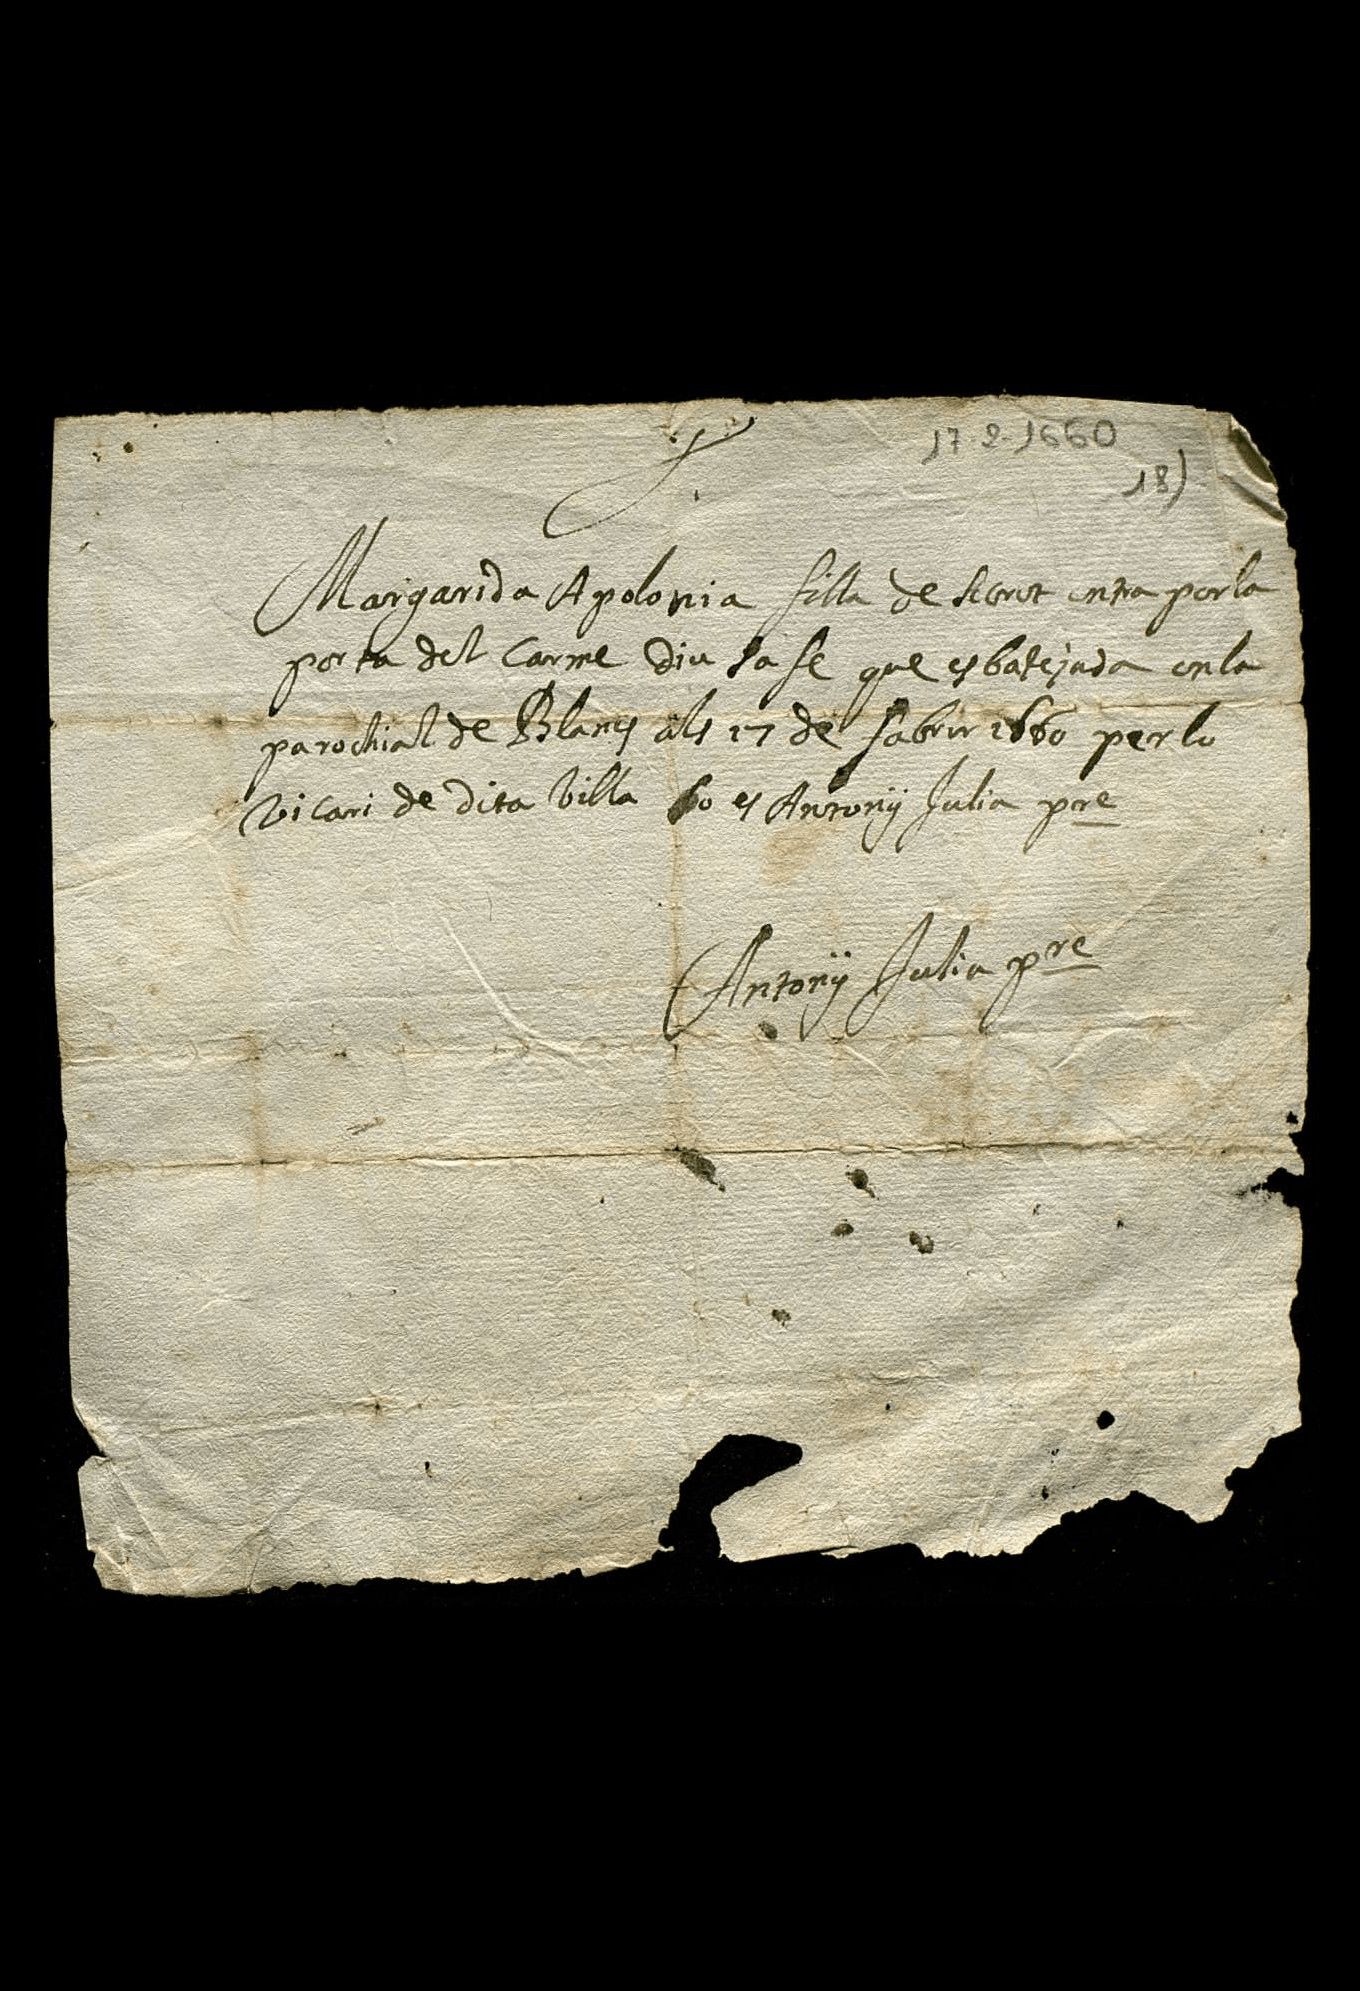 17-2-1660
18)
Margarida Apolonia filla de secret entra per la
porta del Carme diu la fe que es batejada en la
parochial de Blanes als 17 de fabrer 1660 per lo
vicari de dita villa so es Antonij Julia pre
Antonij Julia pre